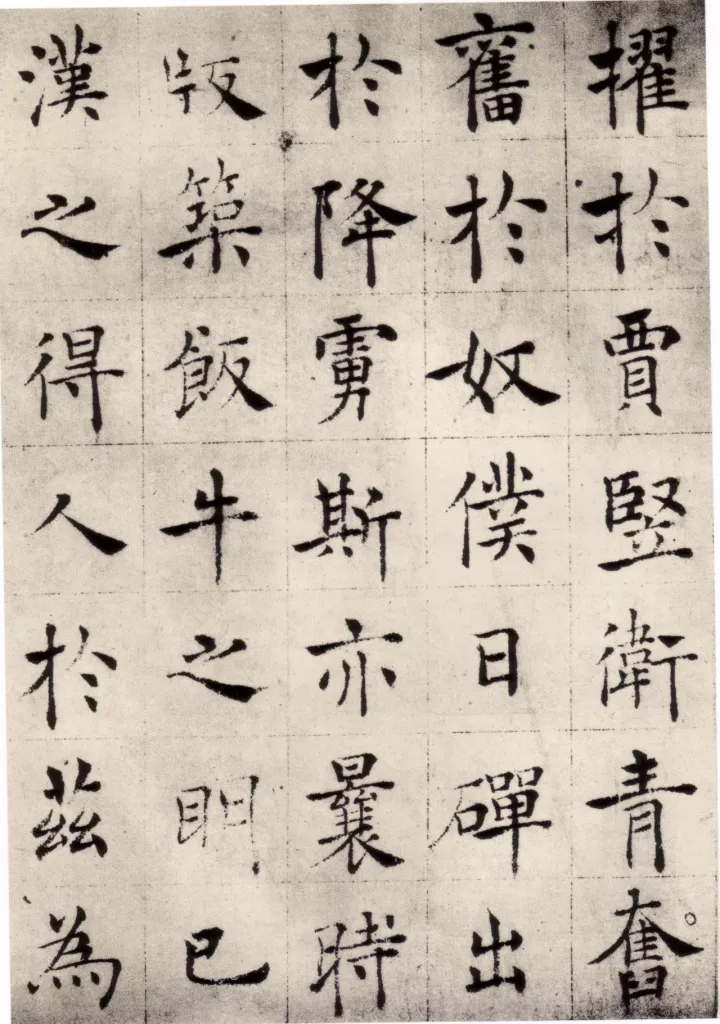 擢於賈豎衛青奮
奮於奴僕日磾出
於降虜斯亦曩時
版築飯牛之眀已
漢之得人於茲為